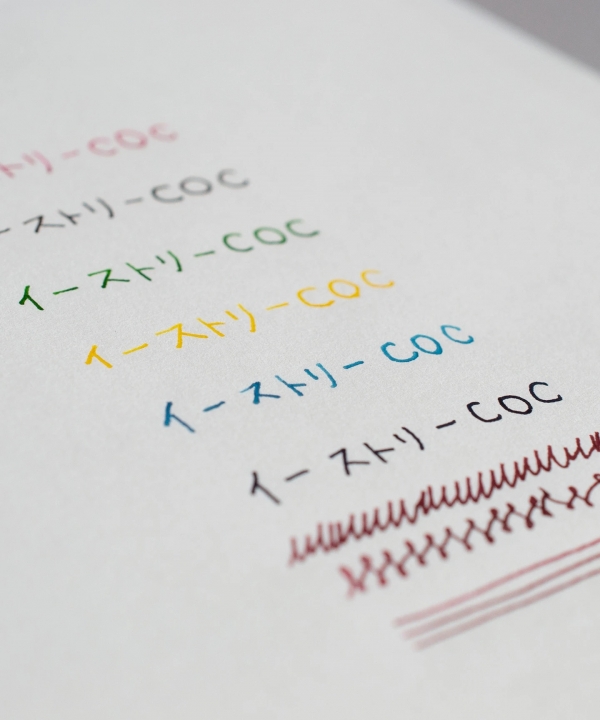 トリーCOC
ーストリーCOC
イーストリーCOC
イーストリーCOC
イーストリーCOC
イーストリーCOC